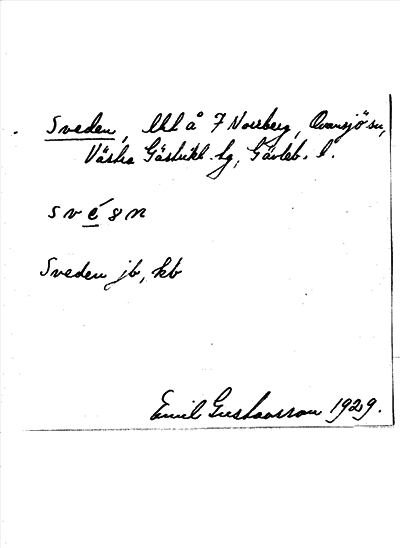 Sveden, lht å 7 Norrberg, Ovansjö sn,
Västra Gästrikl. hg, Gävleb. l.
s v é ȣ n
Sveden jb, kb
Emil Gustavsson 1929.